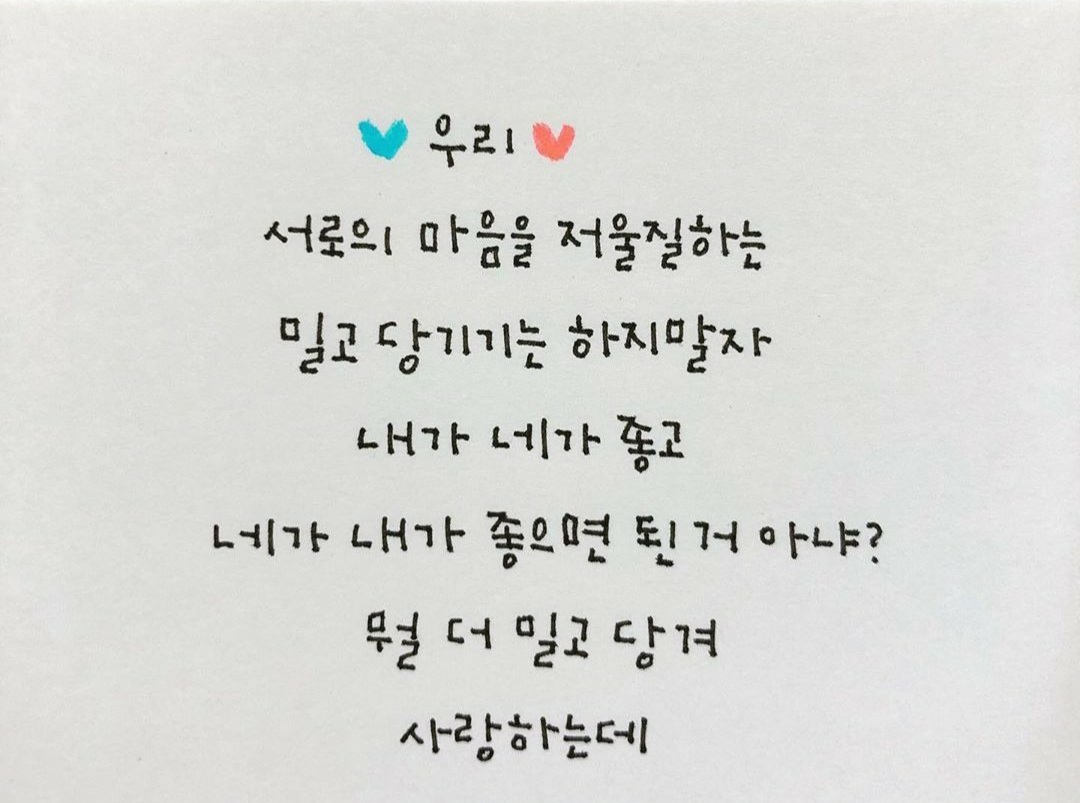 우리
서로의 마음을 저울질하는
밀고 당기기는 하지말자
내가 네가 좋고
네가 내가 좋으면 된 거 아냐?
뭘 더 밀고 당겨
사랑하는데